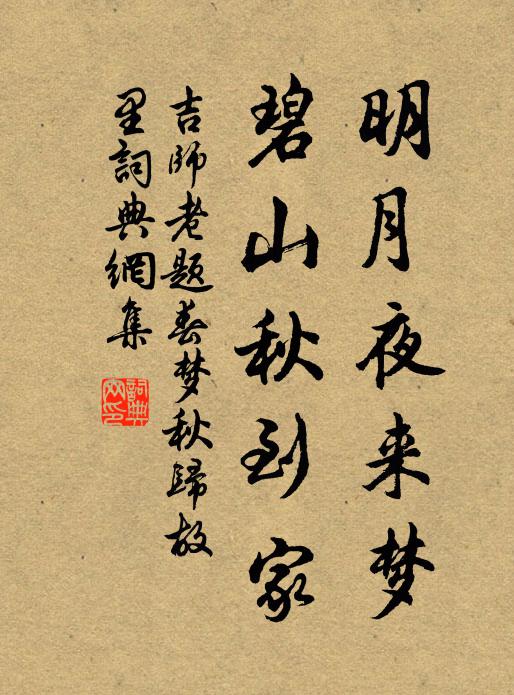 明月夜来梦
碧山秋到家
吉师老题春梦秋歸故
里詞典網集
詞典